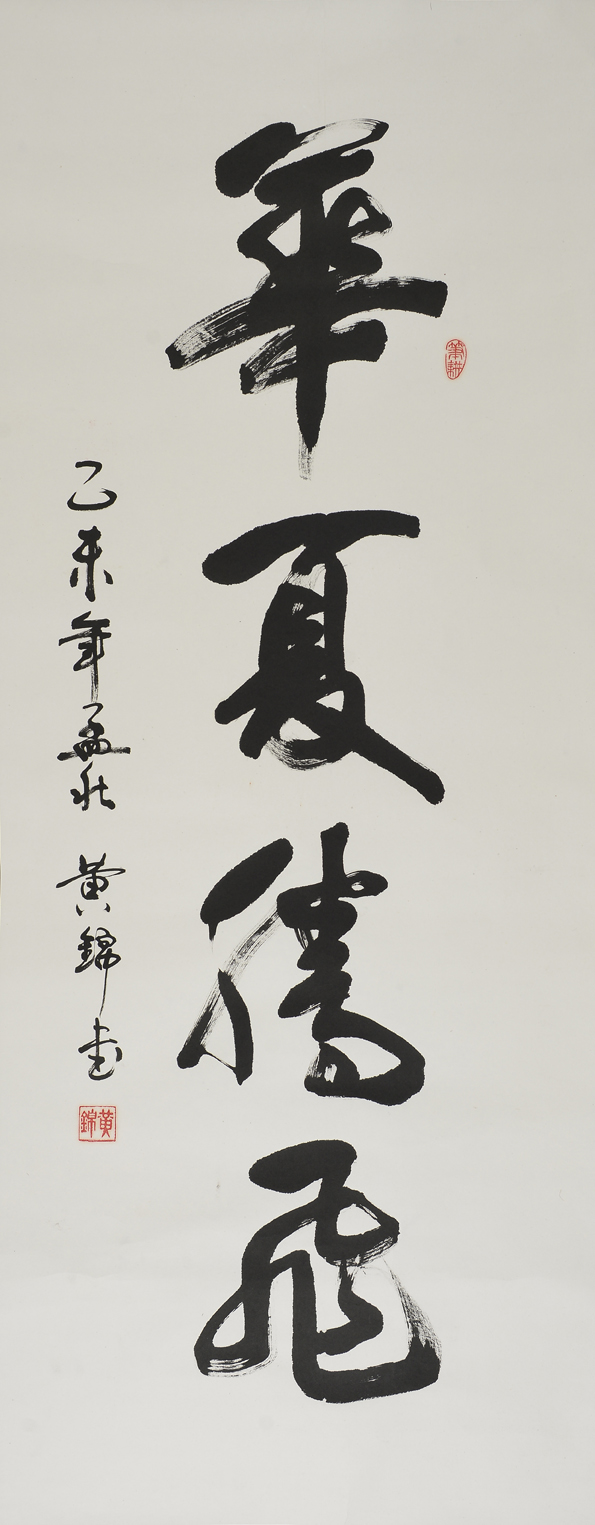 華夏騰飛
筆耕
乙未年孟秋 黄錦书
黄錦